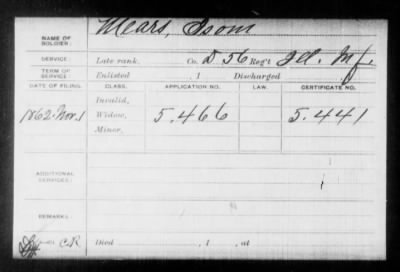 NAME OF SOLDIER: Mears, Isom
SERVICE: Late rank, Co. D 56 Reg't Ill. Inf.
TERM OF SERVICE: Enlisted , 1 Discharged
DATE OF FILING. CLASS. APPLICATION NO. LAW. CERTIFICATE NO.
Invalid,
1862. Nov. 1 Widow, 5.466 5.441
Minor,
ADDITIONAL SERVICES:
REMARKS:
C.R. Died , 1 , at